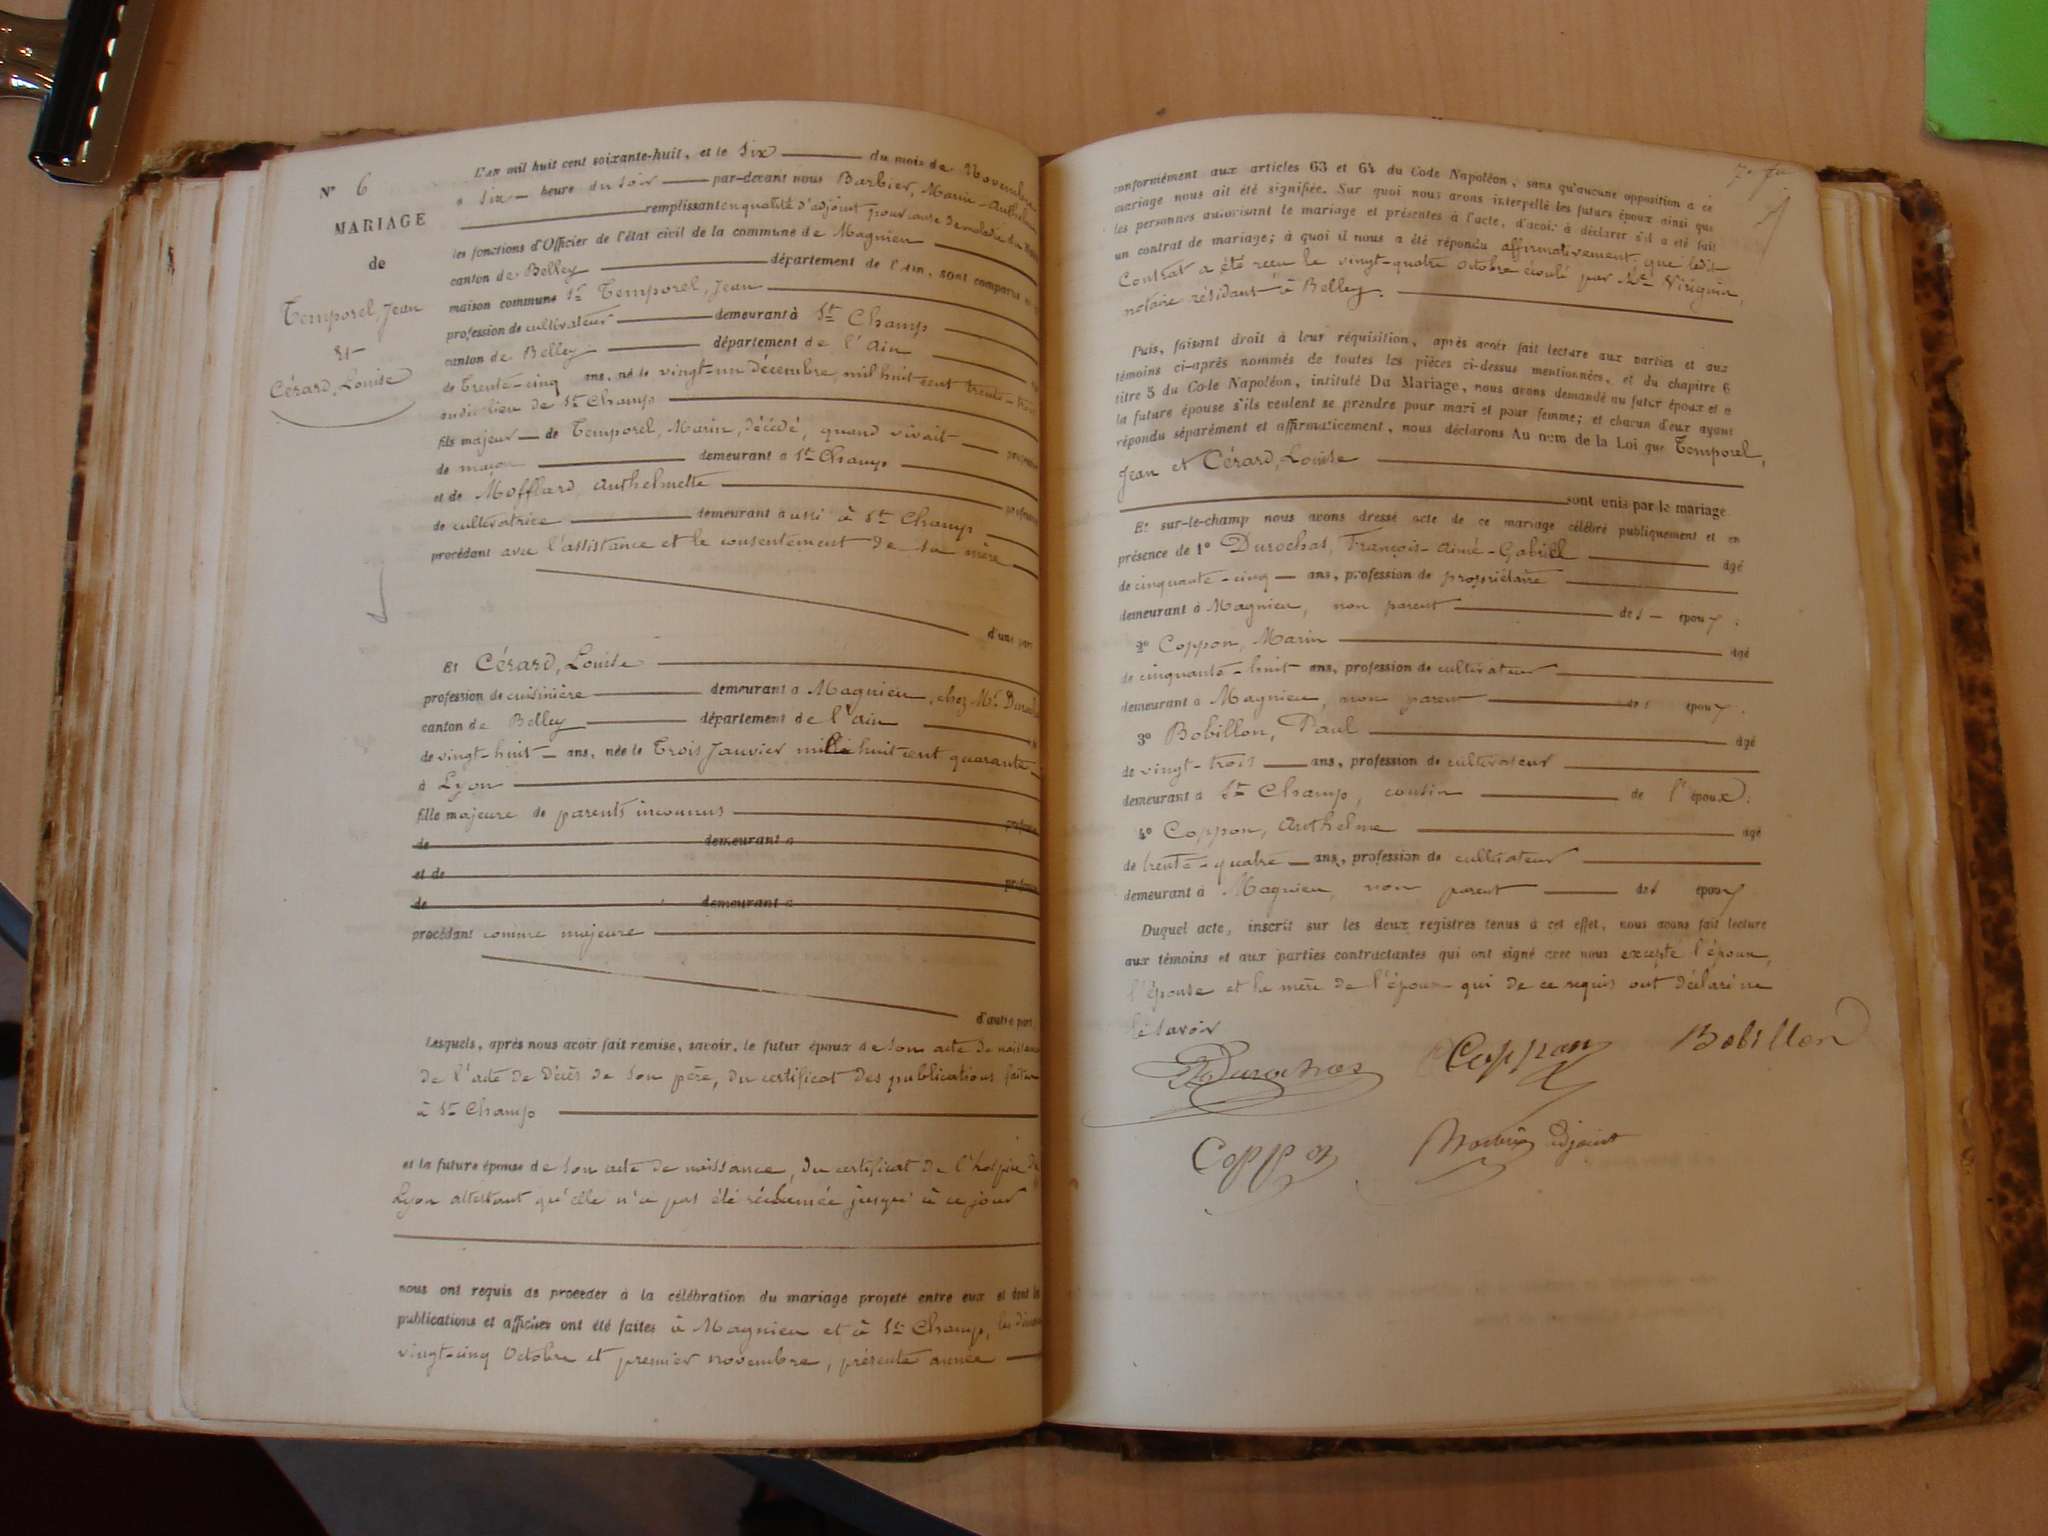 N° 6
MARIAGE
de
Temporel, Jean
et
Cérard, Louise
L'an mil huit cent soixante-huit, et le six du mois de Novembre
à six heure du soir par-devant nous Barbier, Marin-Anthelme
remplissant en qualité d'adjoint pour cause de maladie du Maire
les fonctions d'Officier de l'état civil de la commune de Magnieu
canton de Belley département de l'Ain, sont comparus en
maison commune 1° Temporel, Jean
profession de cultivateur demeurant à St Champ
canton de Belley département de l'Ain
de Trente-cinq ans, né le vingt-un décembre, mil huit cent trente-trois
audit lieu de St Champ
fils majeur de Temporel, Marin, décédé, quand vivait profession
de maçon demeurant à St Champ
et de Mofflard, Anthelmette profession
de cultivatrice demeurant aussi à St Champ
procédant avec l'assistance et le consentement de sa mère
d'une part
Et Cérard, Louise
profession de cuisinière demeurant à Magnieu, chez Mr. Durochat
canton de Belley département de l'Ain
de vingt-huit ans, née le Trois Janvier mille huit cent quarante
à Lyon
fille majeure de parents inconnus profession
de demeurant à
et de profession
de demeurant à
procédant comme majeure
d'autre part
Lesquels, après nous avoir fait remise, savoir, le futur époux de son acte de naissance
de l'acte de décès de son père, du certificat des publications faites
à St Champ
et la future épouse de son acte de naissance, du certificat de l'hospice de
Lyon attestant qu'elle n'a pas été réclamée jusqu'à ce jour
nous ont requis de procéder à la célébration du mariage projeté entre eux et dont les
publications et affiches ont été faites à Magnieu et à St Champ, les dimanches
vingt-cinq Octobre et premier novembre, présente année
conformément aux articles 63 et 64 du Code Napoléon, sans qu'aucune opposition à ce
mariage nous ait été signifiée. Sur quoi nous avons interpellé les futurs époux ainsi que
les personnes autorisant le mariage et présentes à l'acte, d'avoir à déclarer s'il a été fait
un contrat de mariage; à quoi il nous a été répondu affirmativement, que ledit
Contrat a été reçu le vingt-quatre octobre écoulé par Me Viriguin,
notaire résidant à Belley.
Puis, faisant droit à leur réquisition, après avoir fait lecture aux parties et aux
témoins ci-après nommés de toutes les pièces ci-dessus mentionnées, et du chapitre 6
titre 5 du Code Napoléon, intitulé Du Mariage, nous avons demandé au futur époux et à
la future épouse s'ils veulent se prendre pour mari et pour femme; et chacun d'eux ayant
répondu séparément et affirmativement, nous déclarons Au nom de la Loi que Temporel,
Jean et Cérard, Louise
sont unis par le mariage
Et sur-le-champ nous avons dressé acte de ce mariage célébré publiquement et en
présence de 1° Durochat, François-Aimé-Gabriel âgé
de cinquante-cinq ans, profession de propriétaire
demeurant à Magnieu, non parent des époux.
2° Coppon, Marin âgé
de cinquante-huit ans, profession de cultivateur
demeurant à Magnieu, non parent des époux.
3° Bobillon, Paul âgé
de vingt-trois ans, profession de cultivateur
demeurant à St Champ, cousin de l'époux.
4° Coppon, Anthelme âgé
de trente-quatre ans, profession de cultivateur
demeurant à Magnieu, non parent des époux
Duquel acte, inscrit sur les deux registres tenus à cet effet, nous avons fait lecture
aux témoins et aux parties contractantes qui ont signé avec nous excepté l'époux,
l'épouse et la mère de l'époux qui de ce requis ont déclaré ne
le savoir
Durochat Coppon Bobillon
Coppon Barbier adjoint